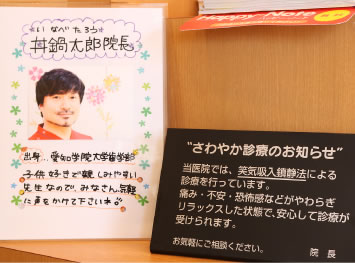 いなべたろう
丼鍋太郎院長
出身…愛知学院大学歯学部
子供好きで親しみやすい
先生なので、みなさん気軽
に声をかけて下さいね♪
Happy Note
"さわやか診療のお知らせ"
当医院では、笑気吸入鎮静法による
診療を行っています。
痛み・不安・恐怖感などがやわらぎ
リラックスした状態で、安心して診療が
受けられます。
お気軽にご相談ください。 院長